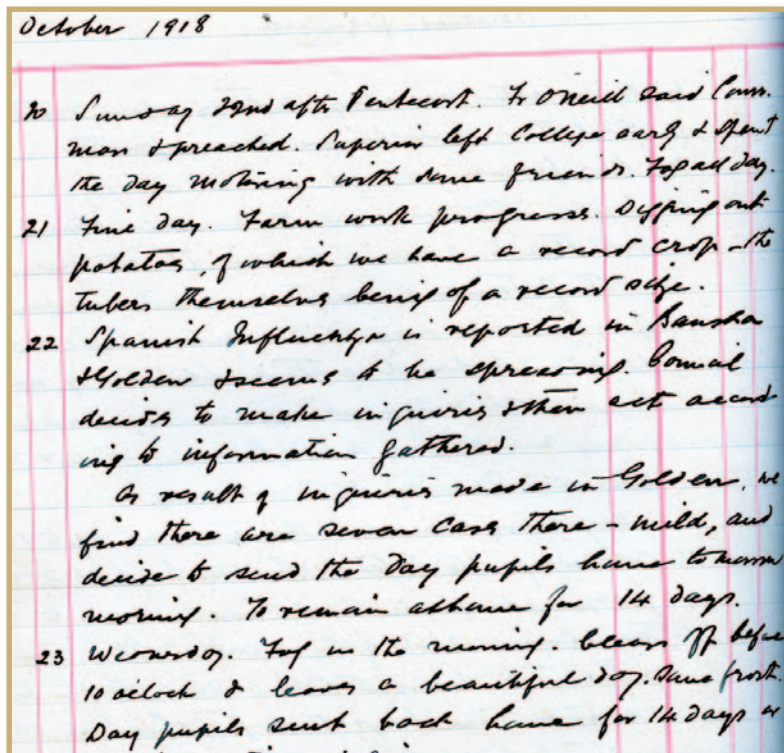 October 1918
20 Sunday 22nd after Pentecost. Fr O'Neill said Comm.
mass & preached. Superior left College early & spent
the day motoring with some friends. Fog all day.
21 Fine day. Farm work progresses. Digging out
potatoes, of which we have a record crop - the
tubers themselves being of a record size.
22 Spanish Influenza is reported in Bansha
& Golden & seems to be spreading. Council
decides to make inquiries & then act accord
ing to information gathered.
As result of inquiries made in Golden, we
find there are seven cases there - mild, and
decide to send the day pupils home tomorrow
morning. To remain at home for 14 days.
23 Wednesday. Fog in the morning. Clears off before
10 oclock & leaves a beautiful day. Some frost.
Day pupils sent back home for 14 days